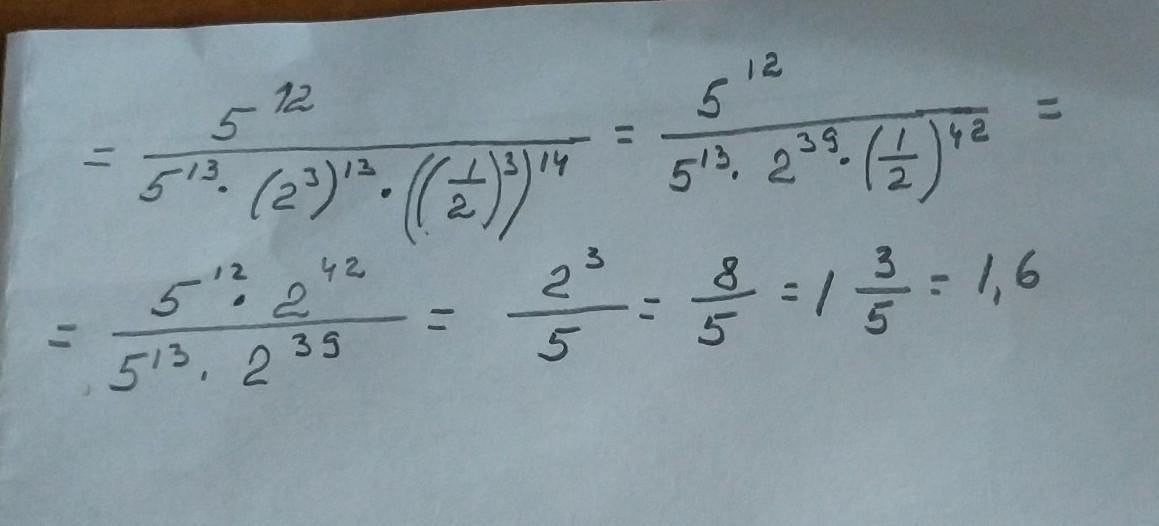 = 5^12 / (5^13 · (2^3)^13 · ((1/2)^3)^14) = 5^12 / (5^13 · 2^39 · (1/2)^42) =
= (5^12 · 2^42) / (5^13 · 2^39) = 2^3 / 5 = 8/5 = 1 3/5 = 1,6